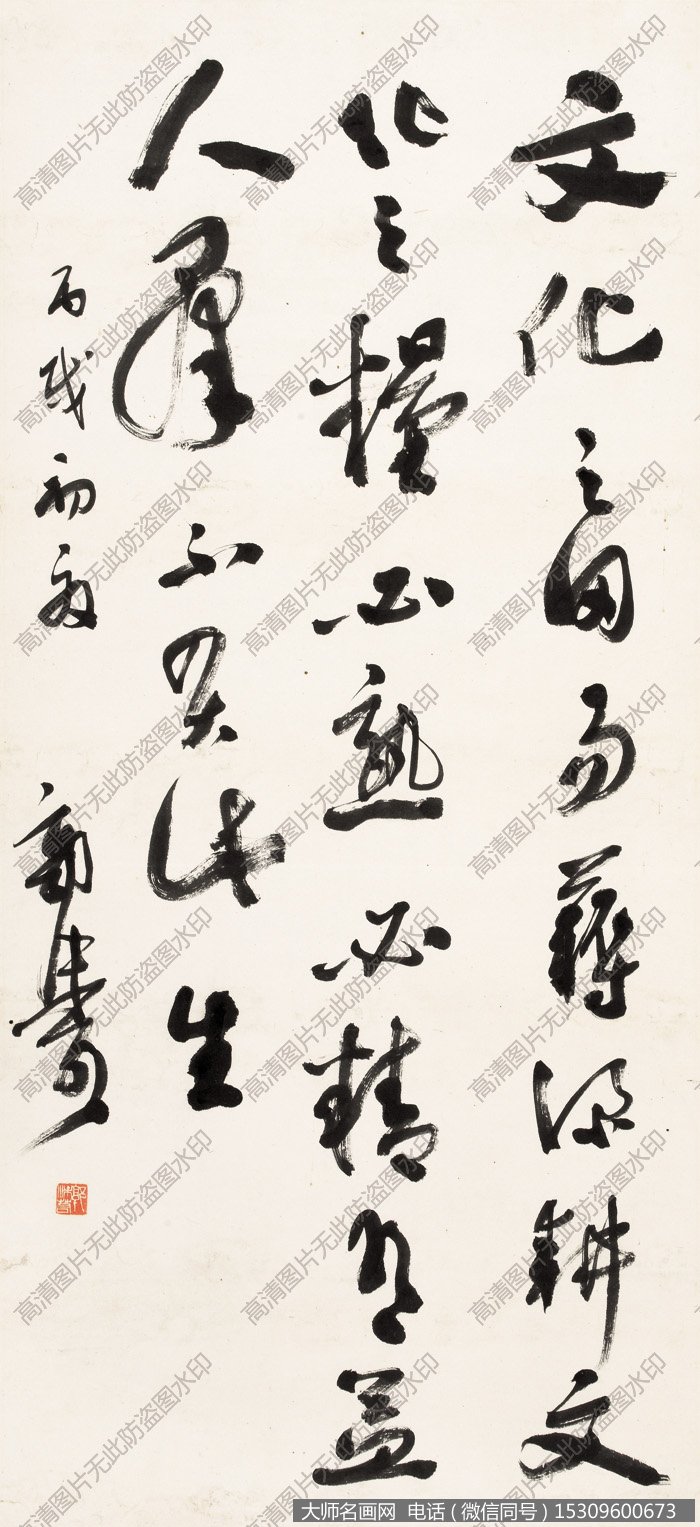 文化之田易耨深耕文
化之糧必熟必精有益
人群不此生
丙戌初夏
郭沫若
郭沫若
高清图片无此防盗图水印
大师名画网 电话（微信同号）15309600673